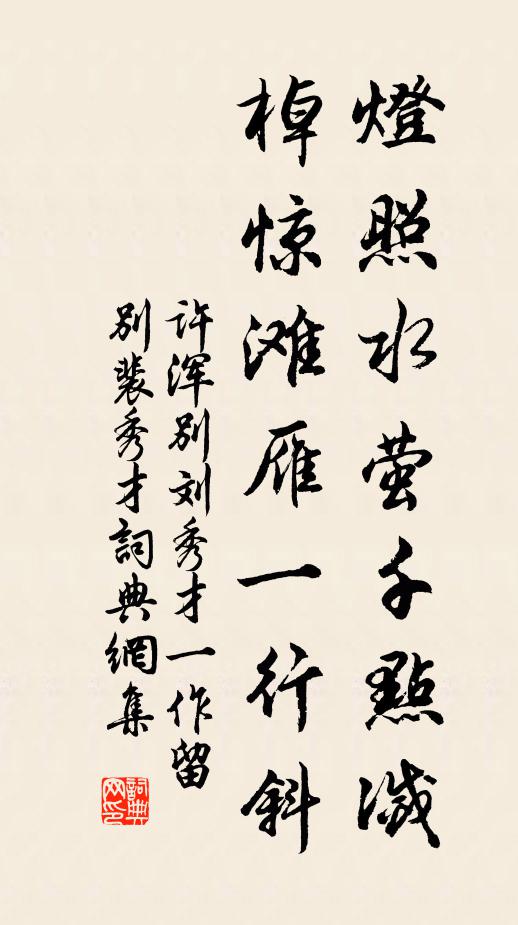 燈照水萤千點滅
棹惊滩雁一行斜
许浑别刘秀才一作留
别裴秀才詞典網集
詞典网印